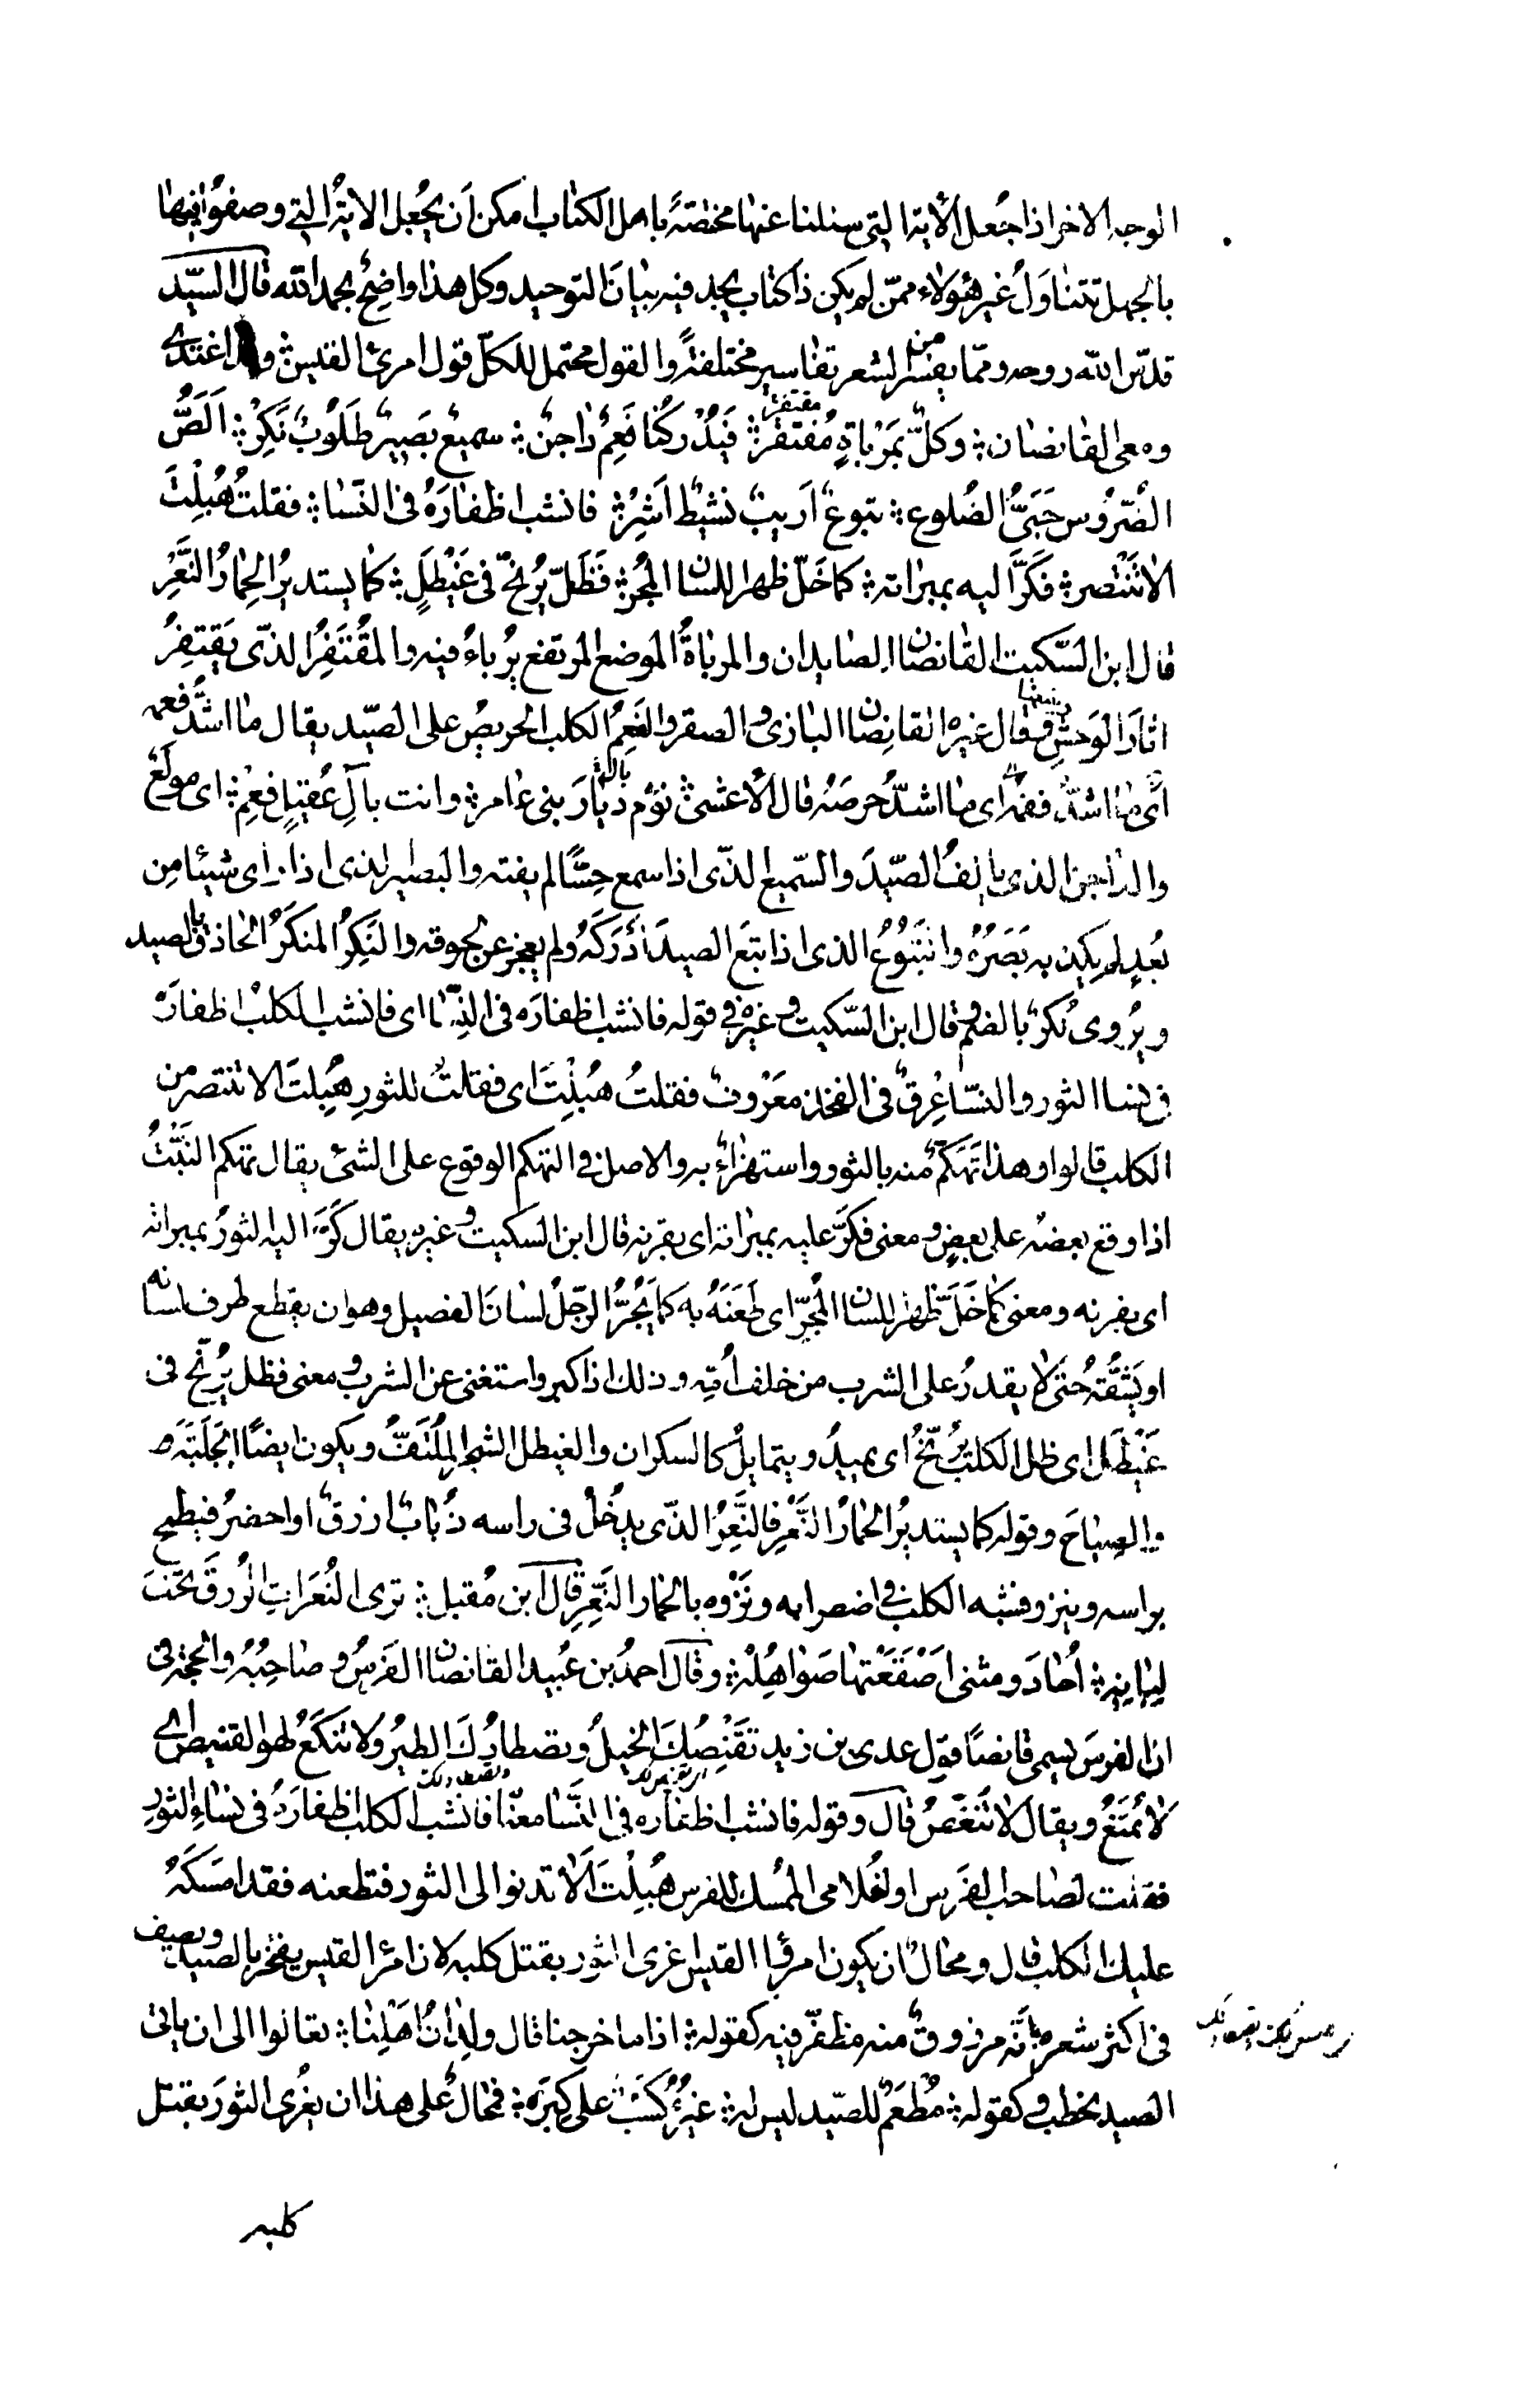 الوجه الاخر اذا جُعل الأية التي سئلنا عنها مختصّةً باهل الكتاب امكن اَن يُجعل الاية التي وصفوا فيها
بالجهل تتناوَلُ غير هؤلاء ممّن لم يكن ذا كتاب يجد فيه بيانَ التوحيد وكل هذا واضِحٌ بحمد الله قال السيّد
قدّس الله روحه وممّا يفسّر من الشعر تفاسير مختلفةً والقول محتمل للكلّ قول امرئ القيس وقد اغتدى
ومعى القانصان وكلٌّ بمَرْبَاةٍ مُقتفِر فَيُدْركُنا فَغِمٌ داجنٌ سميعٌ بَصِيرٌ طَلَوُبٌ نَكِرْ اَلَصُّ
الضّروُس حَبَىُّ الضُلوع تبوعٌ اَريبٌ نشيطٌ اَشِرْ فانشب اظفارَهُ فى النّسا فقلتُ هُبِلْتَ
الا تَنْتصر فَكَرَّ اليه بمبراته كما خَلّ ظهر اللسان المُجِرّ فَظَلّ يُرنّحُ فى غَيْطَلٍ كما يستديرُ الحِمارُ النَّعِرْ
قال ابن السّكيت القانصان الصايدان والمرباةُ الموضع المرتفع يُرباءُ فيه والمُقْتَفِرُ الذى يَقتفِرُ
اثارَ الوَحشِ ويتبعها وقال غيره القانِصان البازى والصقر والفَغِمُ الكلب الحريصُ على الصّيد يقال ما اشدَّ فغمه
اَى ما اشدّ فغمه اى ما اشدّ حرصَه قال الأعشى نؤم ديارَ بنى عامر وانت بالِ عُقيلٍ فَغِمْ اى مولَعٌ
والداجن الذى يالِفُ الصّيدَ والسّميع الذى اذا سمع حِسًّا لم يفته والبصير الذى اذا راى شيئا مِن
بُعدٍ لم يكذب به بَصَرُهُ والتَبُوعُ الذى اذا تبَع الصيدَ اَدْرَكَهُ ولم يعجز عن لحوقه والنَكِرُ المنكَرُ الحاذقُ بالصيد
ويُروى نُكرٌ بالضم وقال ابن السّكيت وغيره فى قوله فانشب اظفارَه فى النّسا اى فانشب الكلبُ اظفارَهُ
فى نسا الثور والنسّا عِرقٌ فى الفخذ معَرْوفٌ فقلتُ هُبِلْتَ اى فقلتُ للثورِ هُبِلتَ الا تنتصر من
الكلب قالوا وهذا تَهَكّمٌ منه بالثور واستهزاءٌ به والاصل فى التهكم الوقوع على الشئ يقال تهكم البَيْتُ
اذا وقع بعضه على بعضٍ ومعنى فكَرَّ عليه بمبراته اى بقرنه قال ابن السكيت وغيره يقال كَرَّ اليه الثورُ بمبراته
اى بقرنه ومعنى كما خَلَّ ظهر اللسان المُجرّ اى طَعَنَهُ به كما يُجُرُّ الرّجُلُ لسانَ الفصيل وهو ان يقطع طرف لسانه
او يَشُقَّهُ حتى لا يقدرُ على الشرب من خلف اُمّه وذلك اذا كبر واستغنى عن الشرب ومعنى فظل يُرنّح فى
غَيْطَل اى ظل الكلبُ يُرنّحُ اى يميدُ ويتمايلُ كالسكران والغيطل الشجر المُلتَفُّ ويكون ايضًا الجَلَبَة
والصِياحَ وقوله كما يستديرُ الحمارُ النَّعِر فالنَّعِرُ الذى يدخُل فى راسه ذُبابٌ ازرقٌ او اخضرُ فيطمح
براسه وينزو فشبّه الكلبَ فى اضطرابه ونَزْوِه بالحمار النَّعِرِ قال ابن مُقبل ترى النُعَرَاتِ الزُرقَ تَحْتَ
لَبانِه اُحادَ ومثنى اَصْعَقَتها صَواهِلُه وقال احمدُ بن عُبيد القانصان الفَرسُ وصاحِبُه والحجّة فى
ان الفرسَ يسمى قانصًا قول عدى بن زيد تَقْنِصُكَ الخيلُ وتصطادُكَ الطيرُ ولا تُنكَعُ لهو القنيص اى
لا تُمَتَّعُ ويقال لا تُنَغَّصُ قال وقوله فانشب اظفاره فى النَّسا معناه فانشب الكلب اظفارَهُ فى نساءِ الثور
فقلت لصاحب الفَرس او لغُلامى المُمسك للفرس هُبِلْتَ اَلا تدنوا الى الثور فتطعنه فقد امسَكَهُ
عليك الكلب قال ومحالٌ ان يكون امرؤ القيس اغرى الثور بقتل كلبه لان امرَأ القيس يفخر بالصيد ويصف
فى اكثر شعره باَنّه مرزوقٌ منه مظفّر فيه كقوله اذا ما خرجنا قال ولدانُ اَهْلِنا تعالوا الى ان ياتى
الصيد نحطب وكقوله مُطْعَمٌ للصّيد ليس له غيرُ كَسْبٌ على كِبَرِه فمحالٌ على هذا ان يغرى الثورَ بقتل
كلبه